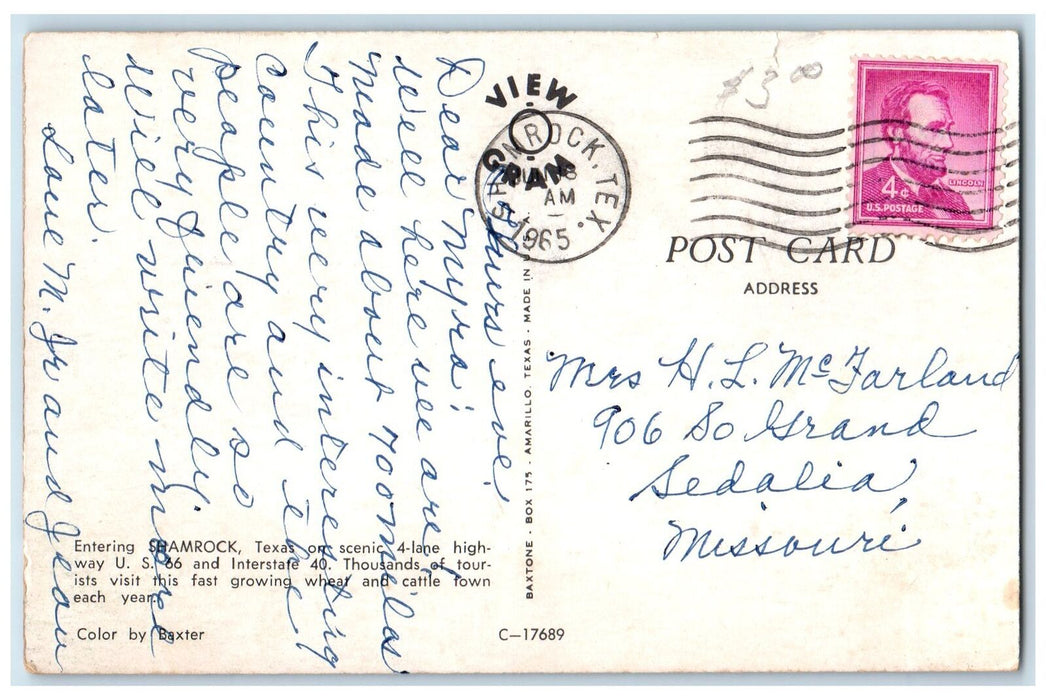 $3.00
VIEW
GRAM
SHAMROCK, TEX.
AM
1965
LINCOLN
4¢
U.S. POSTAGE
POST CARD
ADDRESS
Thurs eve.
Dear Myra:
Well here we are,
made about 700 miles
This very interesting
Country and the
people are so
very friendly.
Will write more
later.
Love M. Jr and Jean
Mrs H. L. McFarland
906 So Grand
Sedalia,
Missouri
Entering SHAMROCK, Texas on scenic 4-lane high-
way U. S. 66 and Interstate 40. Thousands of tour-
ists visit this fast growing wheat and cattle town
each year.
Color by Baxter
C-17689
BAXTONE - BOX 175 - AMARILLO, TEXAS - MADE IN U.S.A.